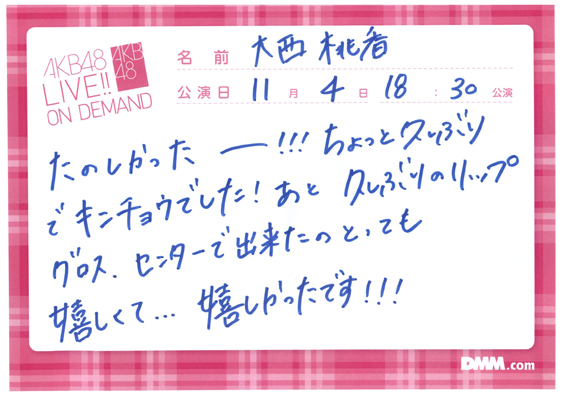 AKB48
LIVE!!
ON DEMAND
AKB
48
名前 大西桃香
公演日 11月4日 18:30公演
たのしかったー!!! ちょっと久しぶり
でキンチョウでした! あと 久しぶりのリップ
グロス、センターで出来たのとっても
嬉しくて... 嬉しかったです!!!
DMM.com